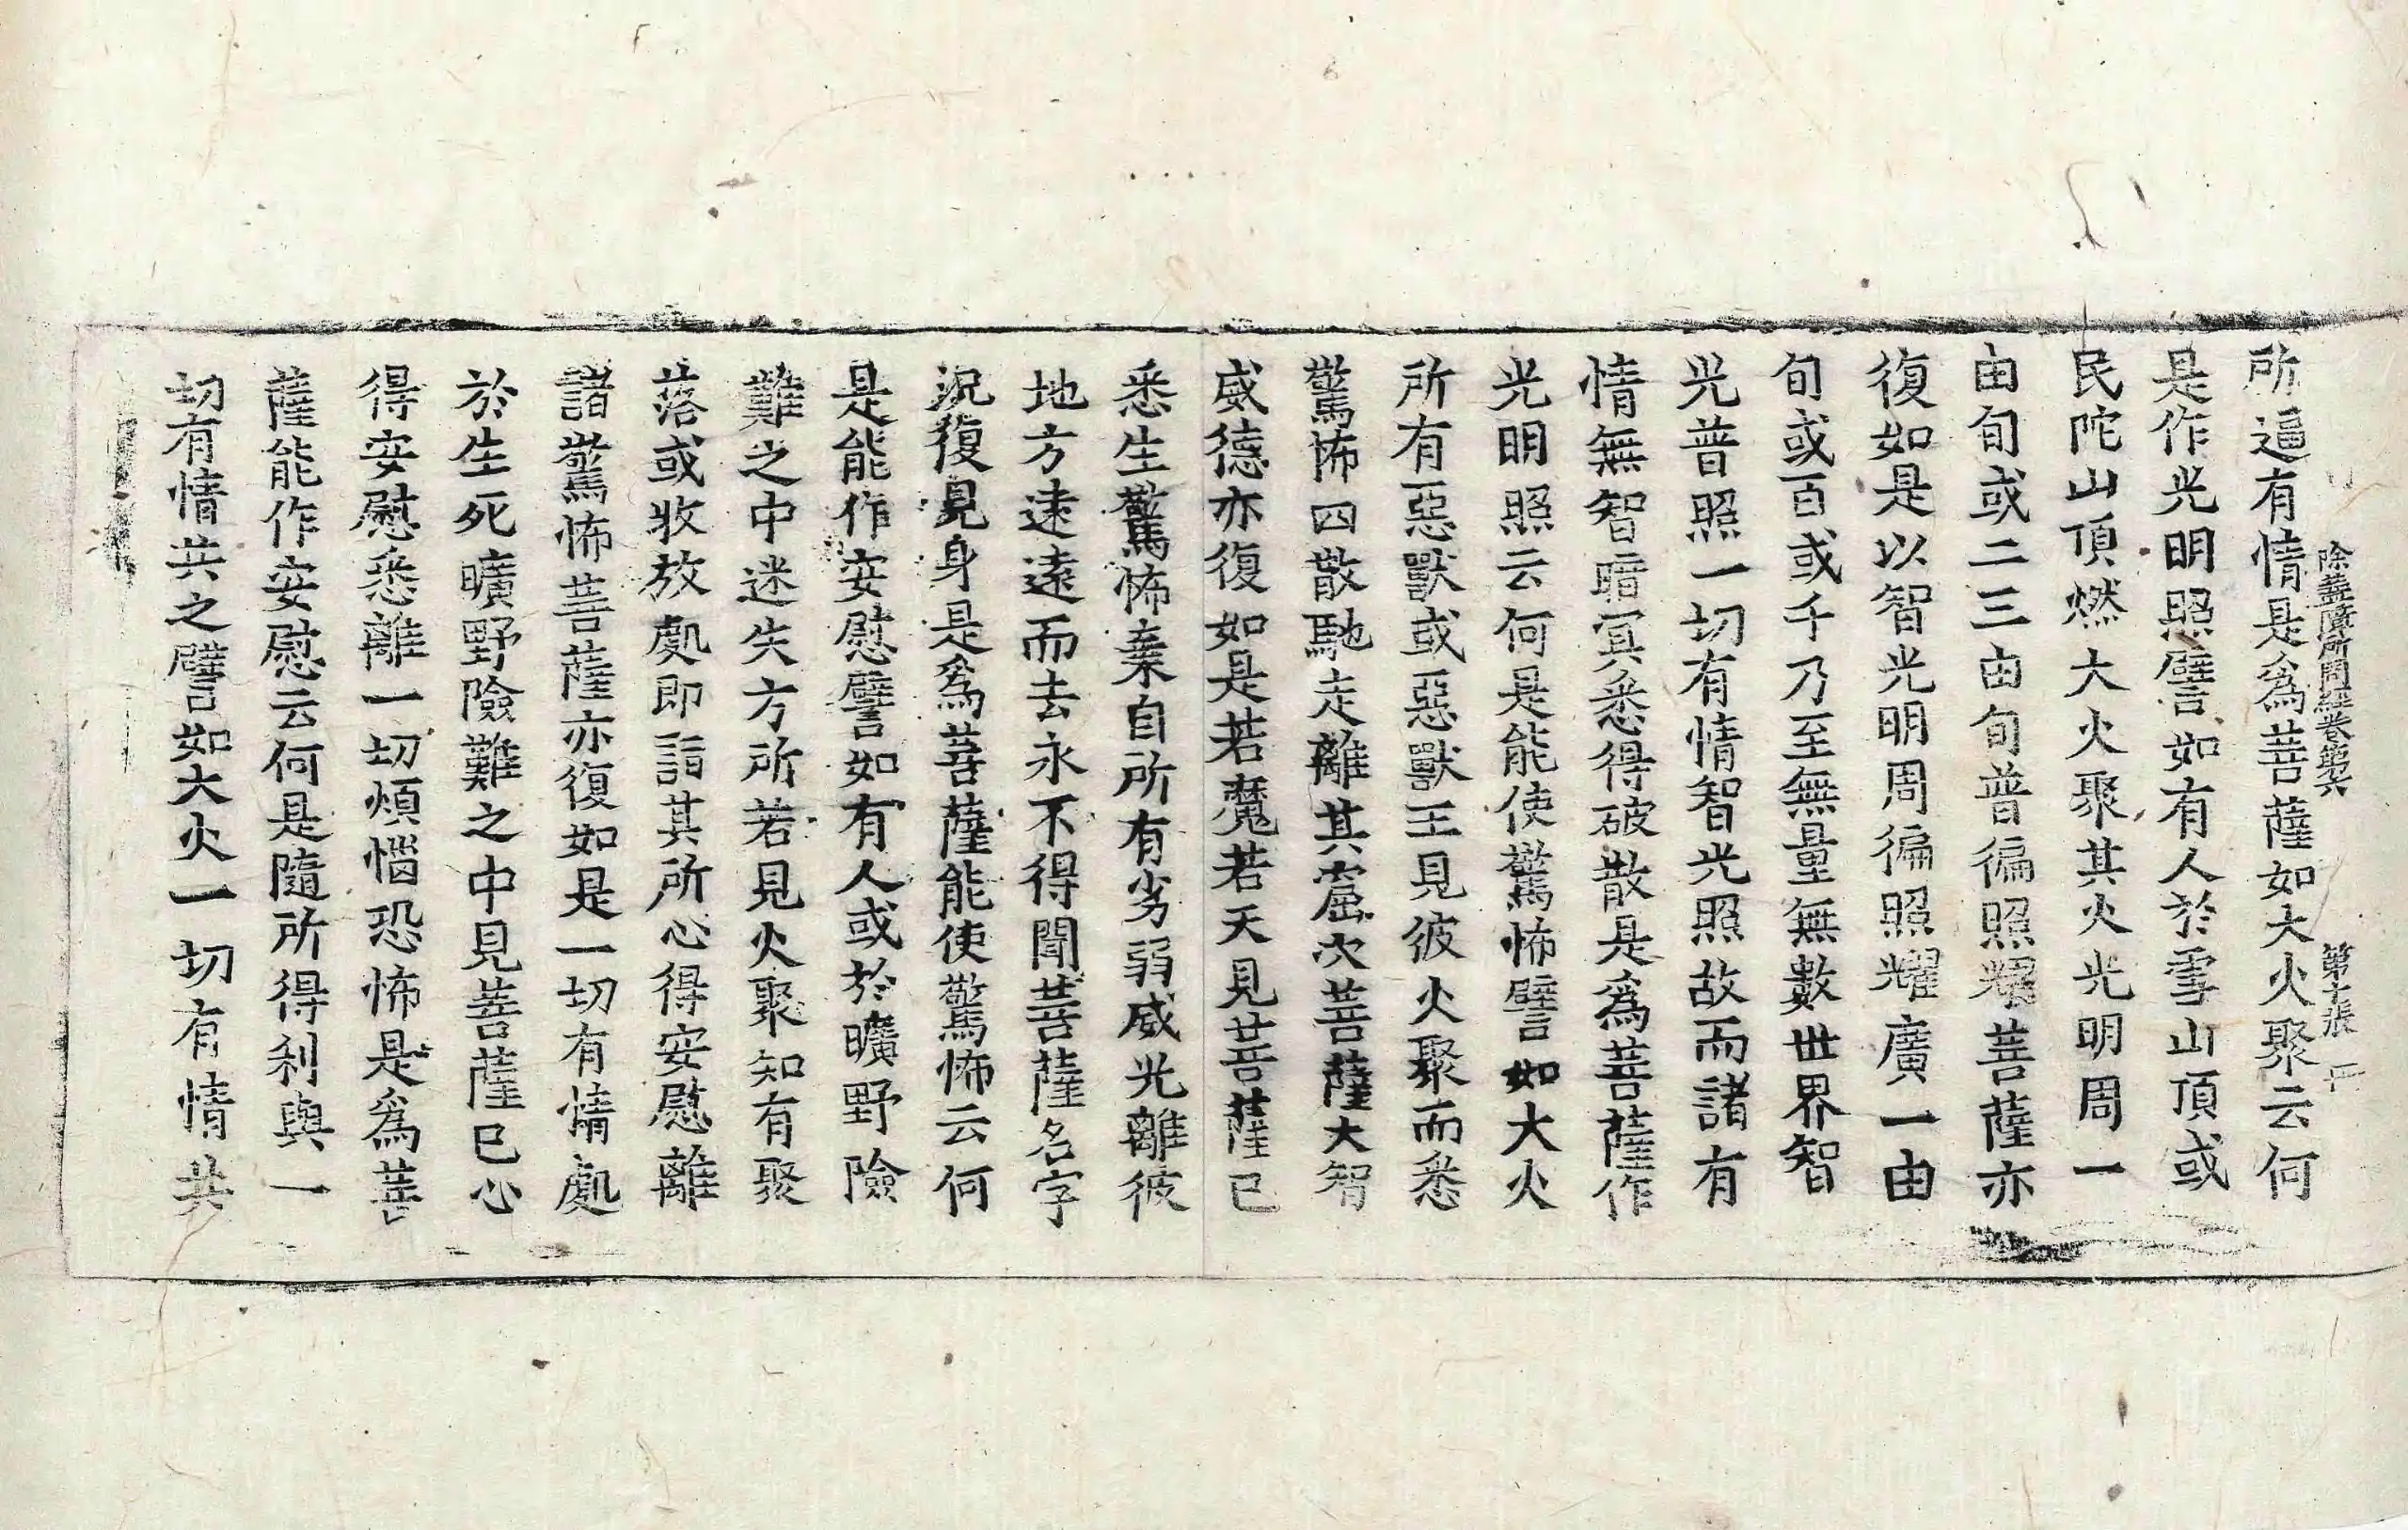 除蓋障所問經卷第六 第十張 
所逼有情是爲菩薩如大火聚云何
是作光明照譬如有人於雪山頂或
民陀山頂燃大火聚其火光明周一
由旬或二三由旬普徧照耀菩薩亦
復如是以智光明周徧照耀廣一由
旬或百或千乃至無量無數世界智
光普照一切有情智光照故而諸有
情無智暗冥悉得破散是爲菩薩作
光明照云何是能使驚怖譬如大火
所有惡獸或惡獸王見彼火聚而悉
驚怖四散馳走離其窟穴菩薩大智
威德亦復如是若魔若天見菩薩已
悉生驚怖棄自所有劣弱威光離彼
地方逺遠而去永不得聞菩薩名字
況復見身是爲菩薩能使驚怖云何
是能作安慰譬如有人或於曠野險
難之中迷失方所若見火聚知有聚
落或牧放處即詣其所心得安慰離
諸驚怖菩薩亦復如是一切有情處
於生死曠野險難之中見菩薩已心
得安慰悉離一切煩惱恐怖是爲菩
薩能作安慰云何是隨所得利與一
切有情共之譬如大火一切有情共